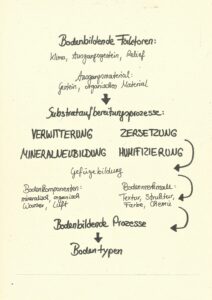 Bodenbildende Faktoren:
Klima, Ausgangsgestein, Relief
Ausgangsmaterial:
Gestein, organisches Material
Substrataufbereitungsprozesse:
VERWITTERUNG ZERSETZUNG
MINERALNEUBILDUNG HUMIFIZIERUNG
Gefügebildung
Bodenkomponenten: Bodenmerkmale:
mineralisch, organisch Textur, Struktur,
Wasser, Luft Farbe, Chemie
Bodenbildende Prozesse
Bodentypen